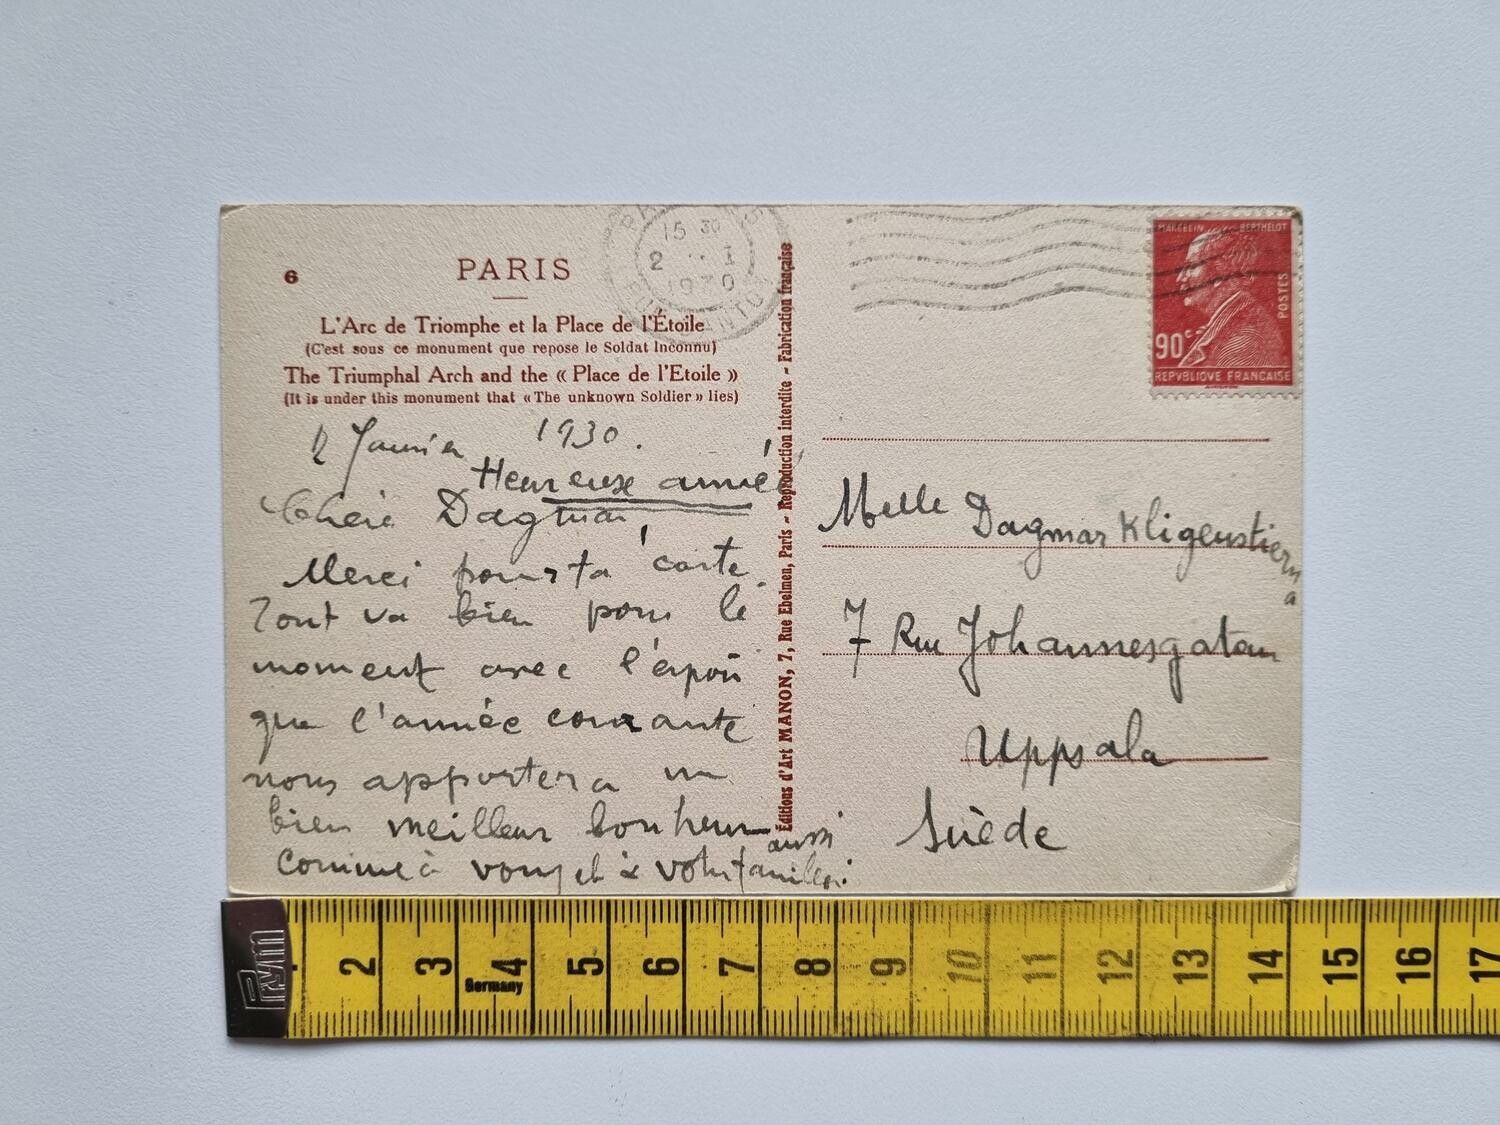 6
PARIS
L'Arc de Triomphe et la Place de l'Étoile
(C'est sous ce monument que repose le Soldat Inconnu)
The Triumphal Arch and the « Place de l'Etoile »
(It is under this monument that «The unknown Soldier» lies)
2 Janvier 1930.
Heureuse année
Chère Dagmar,
Merci pour ta carte.
Tout va bien pour le
moment avec l'espoir
que l'année courante
nous apportera un
bien meilleur bonheur
aussi
comme à vous et à votre famille.
Éditions d'Art MANON, 7, Rue Ebelmen, Paris - Reproduction interdite - Fabrication française
15 30
2 .. I
1930
MARCELIN BERTHELOT
POSTES
90c
REPVBLIQVE FRANCAISE
Melle Dagmar Kligenstierna
7 Rue Johannesgatan
Uppsala
Suède
Prym
Germany
2 3 4 5 6 7 8 9 10 11 12 13 14 15 16 17